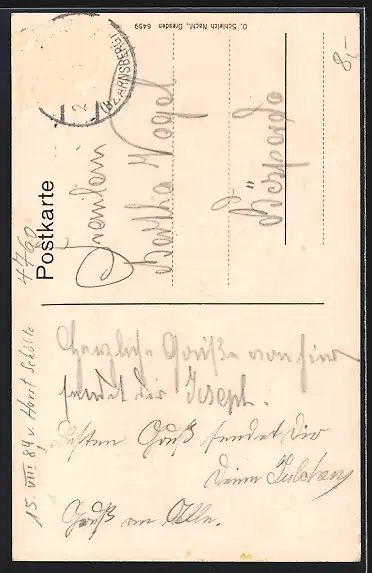 Postkarte
Fräulein
Bertha Vogel
Bösperde
O. Schleich Nachf., Dresden 6459
(BZ. ARNSBERG)
2
8,-
4760
15. VIII 84 v. Horst Schölle
Herzliche Grüße von hier
sendet dir Joseph.
Besten Gruß sendet Dir
Deine Julchen
Gruß an Alle.